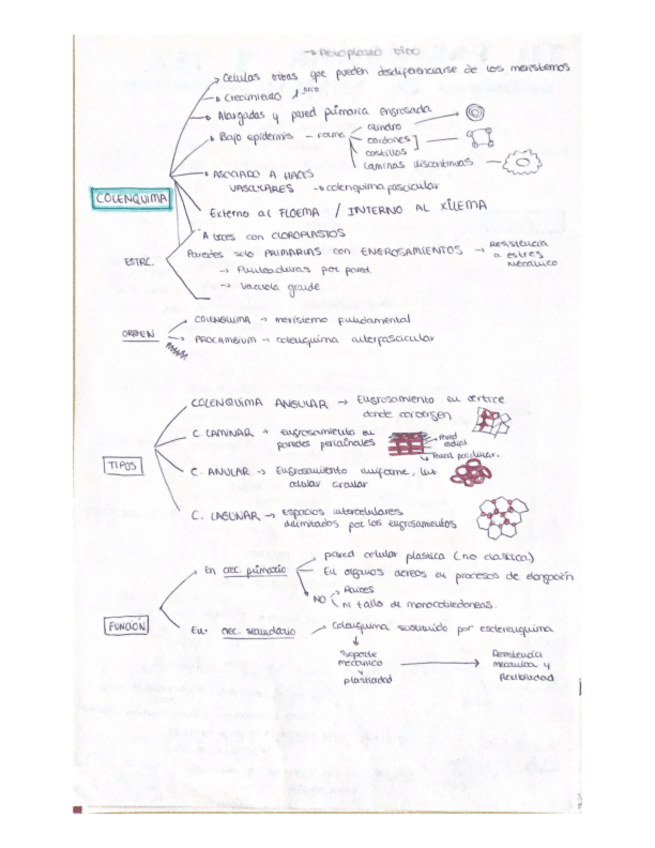 → Protoplasto vivo
→ Celulas vivas que pueden desdiferenciarse de los meristemos
→ Crecimiento 1ario
→ Alargadas y pared primaria engrosada
→ Bajo epidermis - forma
cilindro
cordones
costillas
laminas discontinuas
→ ASOCIADO A HACES
VASCULARES → colenquima fascicular
COLENQUIMA
Externo al FLOEMA / INTERNO AL XILEMA
A veces con CLOROPLASTOS
ESTRC.
Paredes solo PRIMARIAS con ENGROSAMIENTOS → Resistencia
a estres
mecánico
→ Punteaduras por pared
→ Vacuola grande
ORIGEN
COLENQUIMA → meristemo fundamental
PROCAMBIUM → colenquima interfascicular
TIPOS
COLENQUIMA ANGULAR → Engrosamiento en vertice
donde convergen
C. LAMINAR → engrosamiento en
paredes periclinales
Pared
radial
Pared periclinal.
C. ANULAR → Engrosamiento uniforme,
celular circular
C. LAGUNAR → espacios intercelulares
delimitados por los engrosamientos
FUNCIÓN
En crec. primario
pared celular plastica (no elastica)
En organos aereos en procesos de elongación
NO
Raices
ni tallo de monocotiledoneas.
En crec. secundario
Colenquima sustituido por esclerenquima
Soporte
mecánico
y
plasticidad
Resistencia
mecánica y
flexibilidad